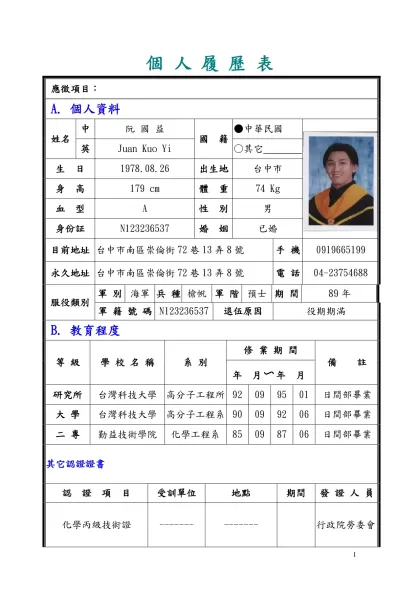 個人履歷表
應徵項目：
A. 個人資料
姓名 中 阮國益 國籍 ●中華民國
英 Juan Kuo Yi ○其它
生日 1978.08.26 出生地 台中市
身高 179 cm 體重 74 Kg
血型 A 性別 男
身份証 N123236537 婚姻 已婚
目前地址 台中市南區崇倫街 72 巷 13 弄 8 號 手機 0919665199
永久地址 台中市南區崇倫街 72 巷 13 弄 8 號 電話 04-23754688
服役類別 軍別 海軍 兵種 槍帆 軍階 預士 期間 89 年
軍籍號碼 N123236537 退伍原因 役期期滿
B. 教育程度
等級 學校名稱 系別 修業期間 備註
年 月～年 月
研究所 台灣科技大學 高分子工程所 92 09 95 01 日間部畢業
大學 台灣科技大學 高分子工程系 90 09 92 06 日間部畢業
二專 勤益技術學院 化學工程系 85 09 87 06 日間部畢業
其它認證證書
認證項目 受訓單位 地點 期間 發證人員
化學丙級技術證 ------- ------- 行政院勞委會
1